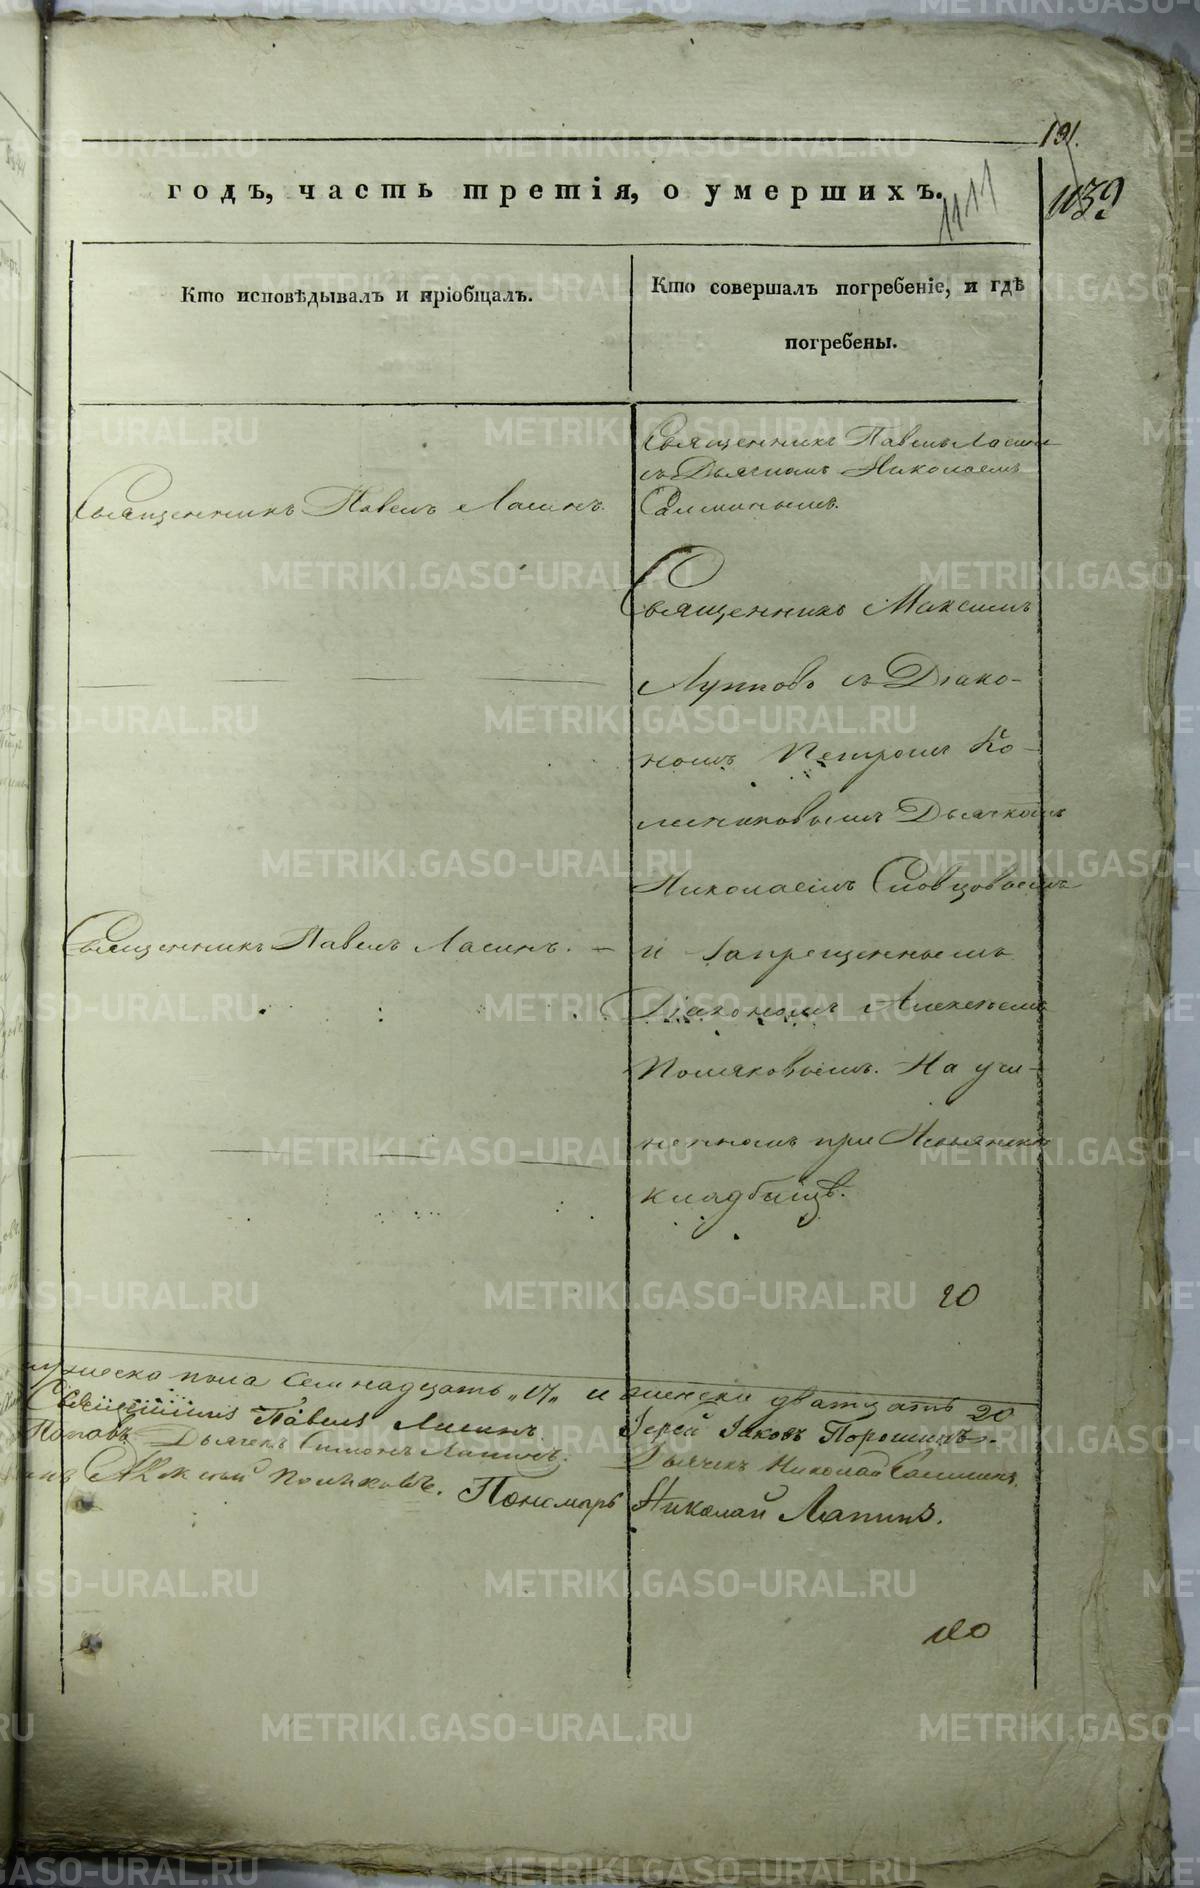 191.
годъ, часть третія, о умершихъ.
1111
1139
Кто исповѣдывалъ и пріобщалъ.
Кто совершалъ погребеніе, и гдѣ
погребены.
Священникъ Павелъ Ласинъ
съ Дьячкомъ Николаемъ
Священникъ Павелъ Ласинъ.
Салминымъ.
Священникъ Максимъ
Лупповъ съ Діако-
номъ Петромъ Ко-
Дьячкомъ
Николаемъ Словцовымъ
Священникъ Павелъ Ласинъ. –
и Запрещеннымъ
Діакономъ Алексѣемъ
Поляковымъ. На учи-
ненномъ при Невьянскъ
кладбищѣ.
20
мужеска пола семнадцать „17„ и женска дватцать 20
Священникъ Павелъ Ласинъ.
Іерей Іаковъ Порошинъ.
Поповъ Дьячекъ Симонъ Лапинъ.
Дьячекъ Николай Салминъ.
Алексѣй Поляковъ. Пономарь Николай Лапинъ.
METRIKI.GASO-URAL.RU